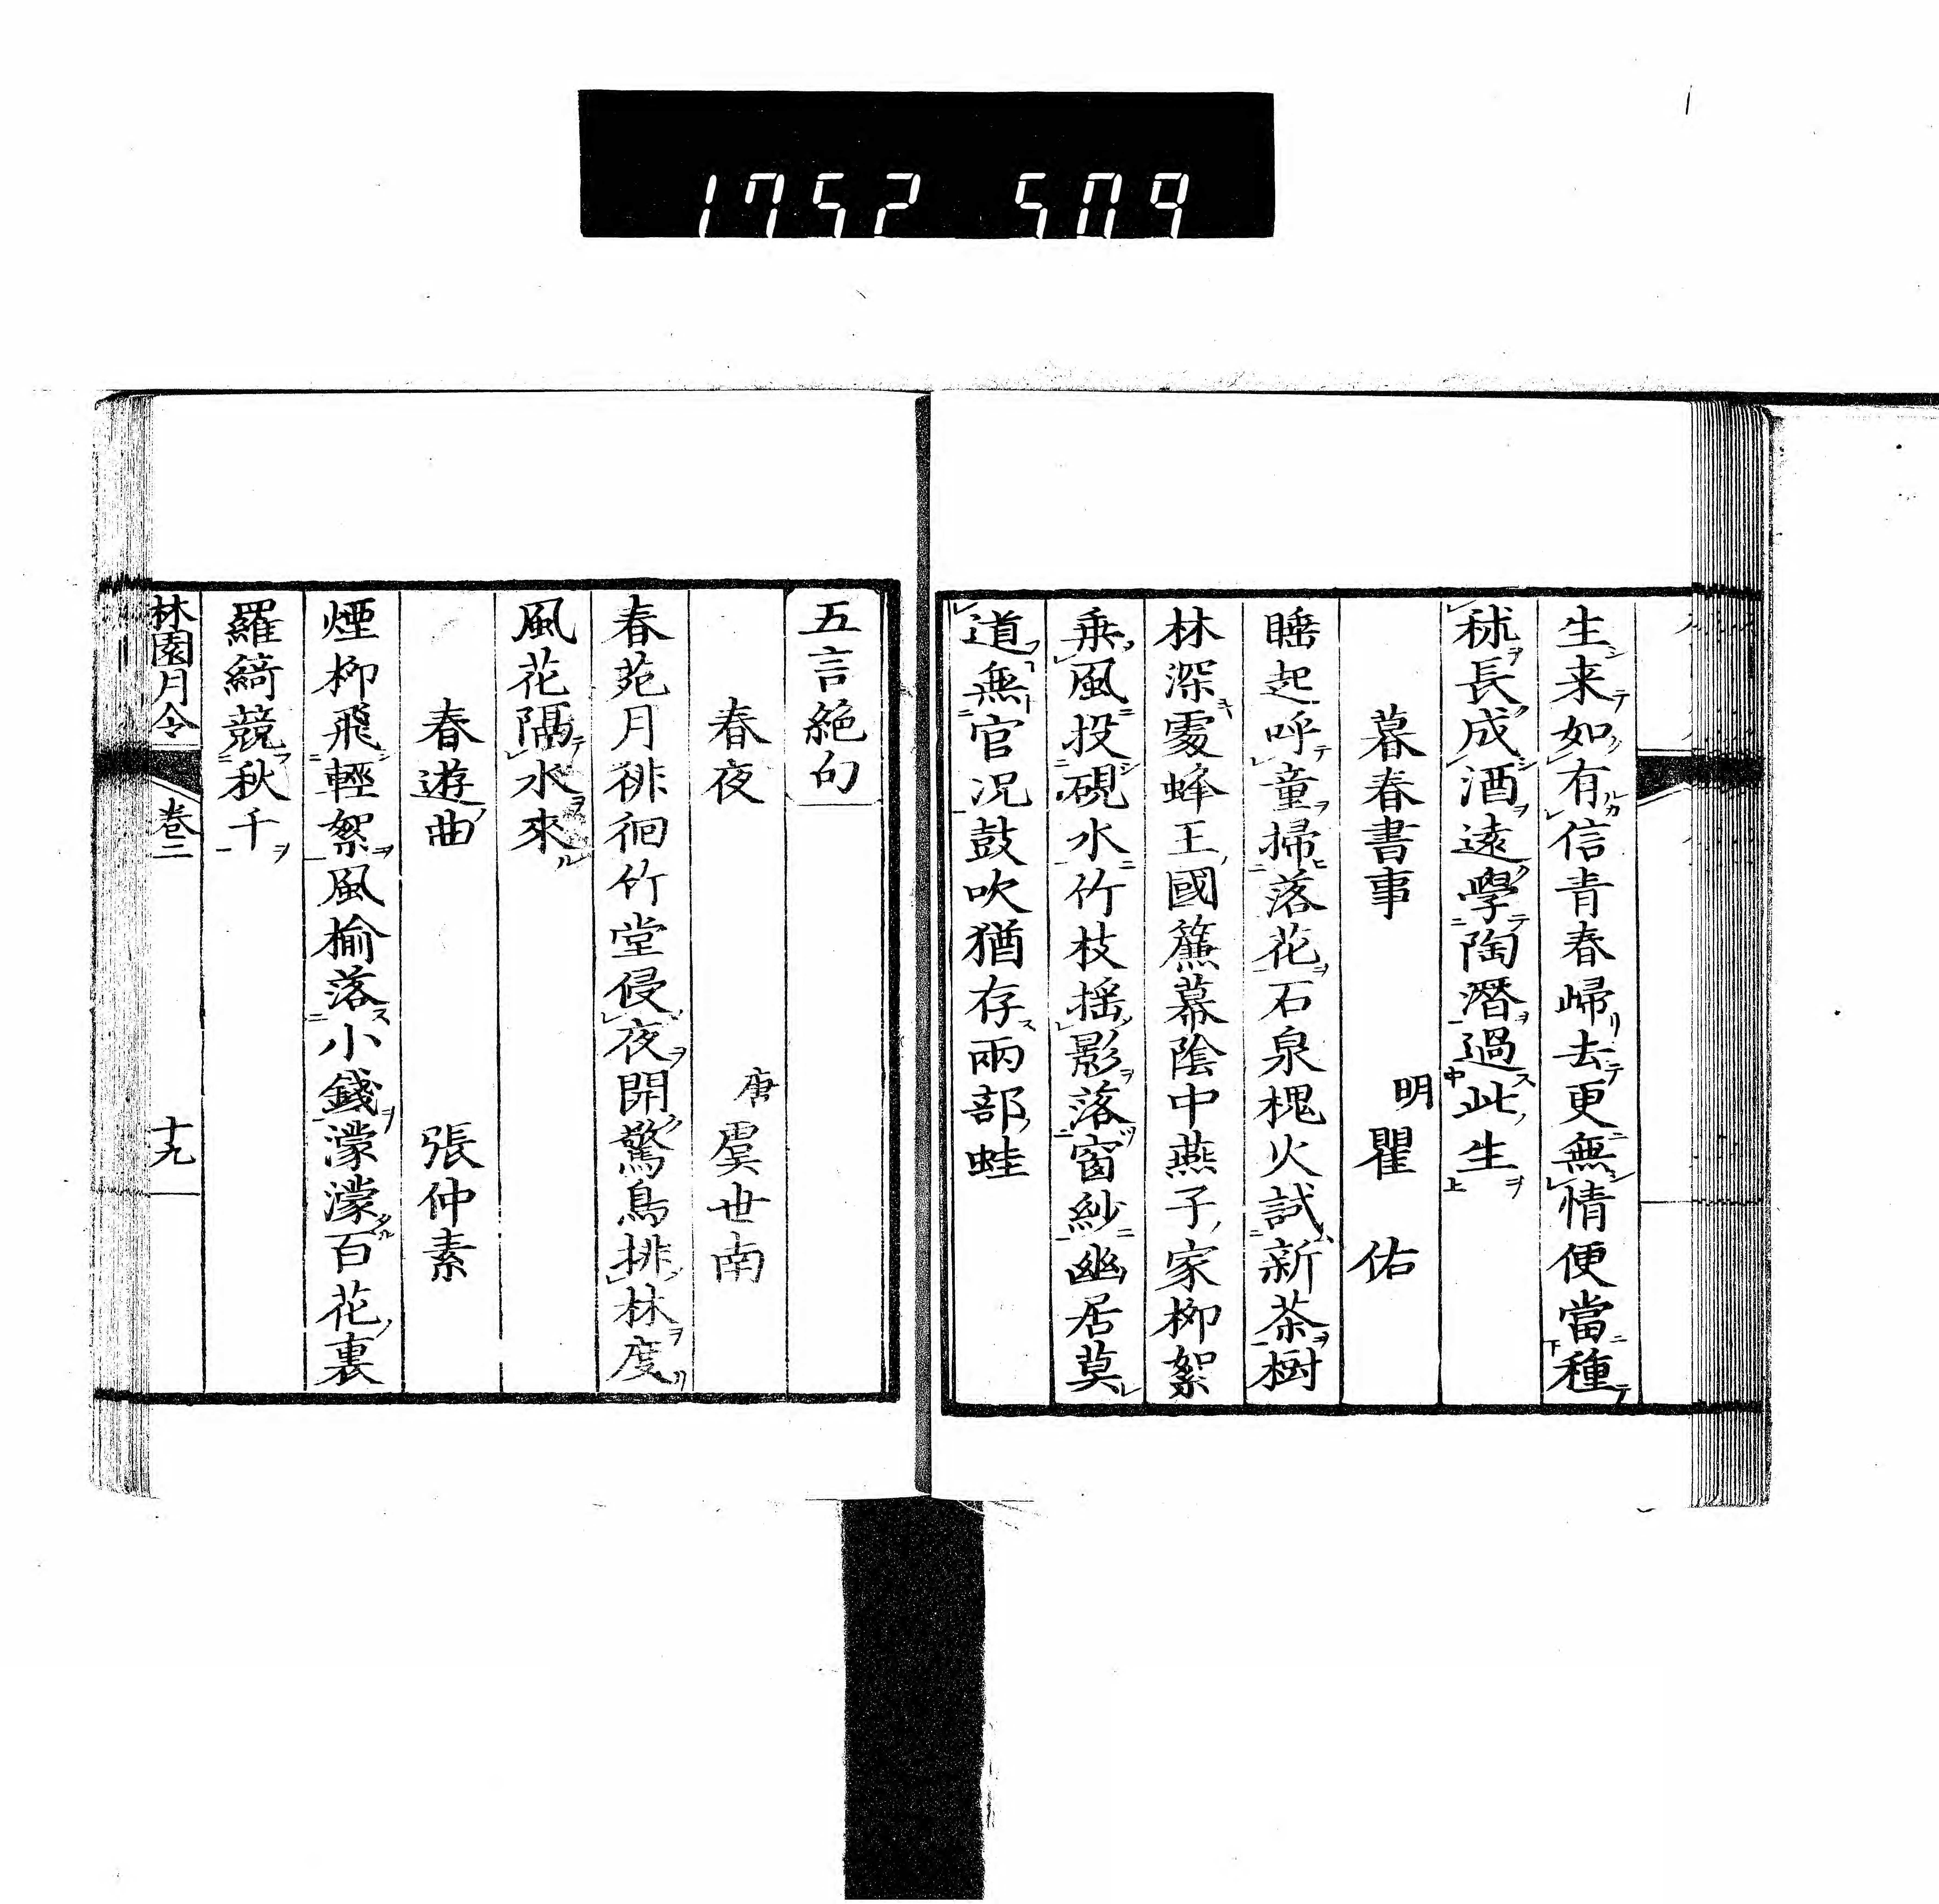 1752 509
生来如有信青春歸去更無情便當種
秫長成酒遠學陶潛過此生
暮春書事 明 瞿佑
睡起呼童掃落花石泉槐火試新茶樹
林深處蜂王國簾幕陰中燕子家柳絮
乘風投硯水竹枝揺影落窗紗幽居莫
道無官况鼓吹猶存兩部蛙
五言絶句
春夜 唐 虞世南
春苑月徘徊竹堂侵夜開驚鳥排林度
風花隔水來
春遊曲 張仲素
煙柳飛輕絮風榆落小錢濛濛百花裏
羅綺競秋千
林園月令 卷二 十九